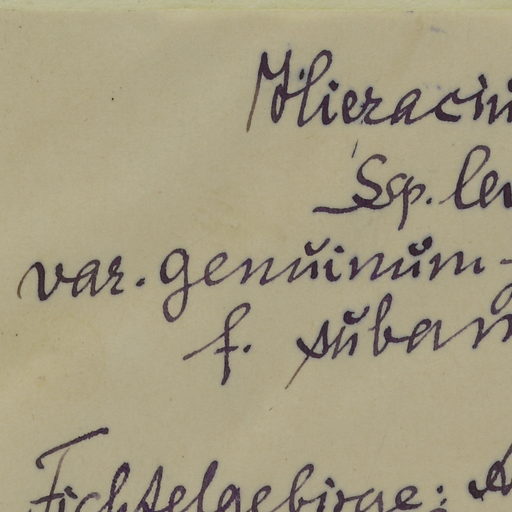 Hieraciu
Ssp. lev
var. genuinum-
f. subam
Fichtelgebirge: